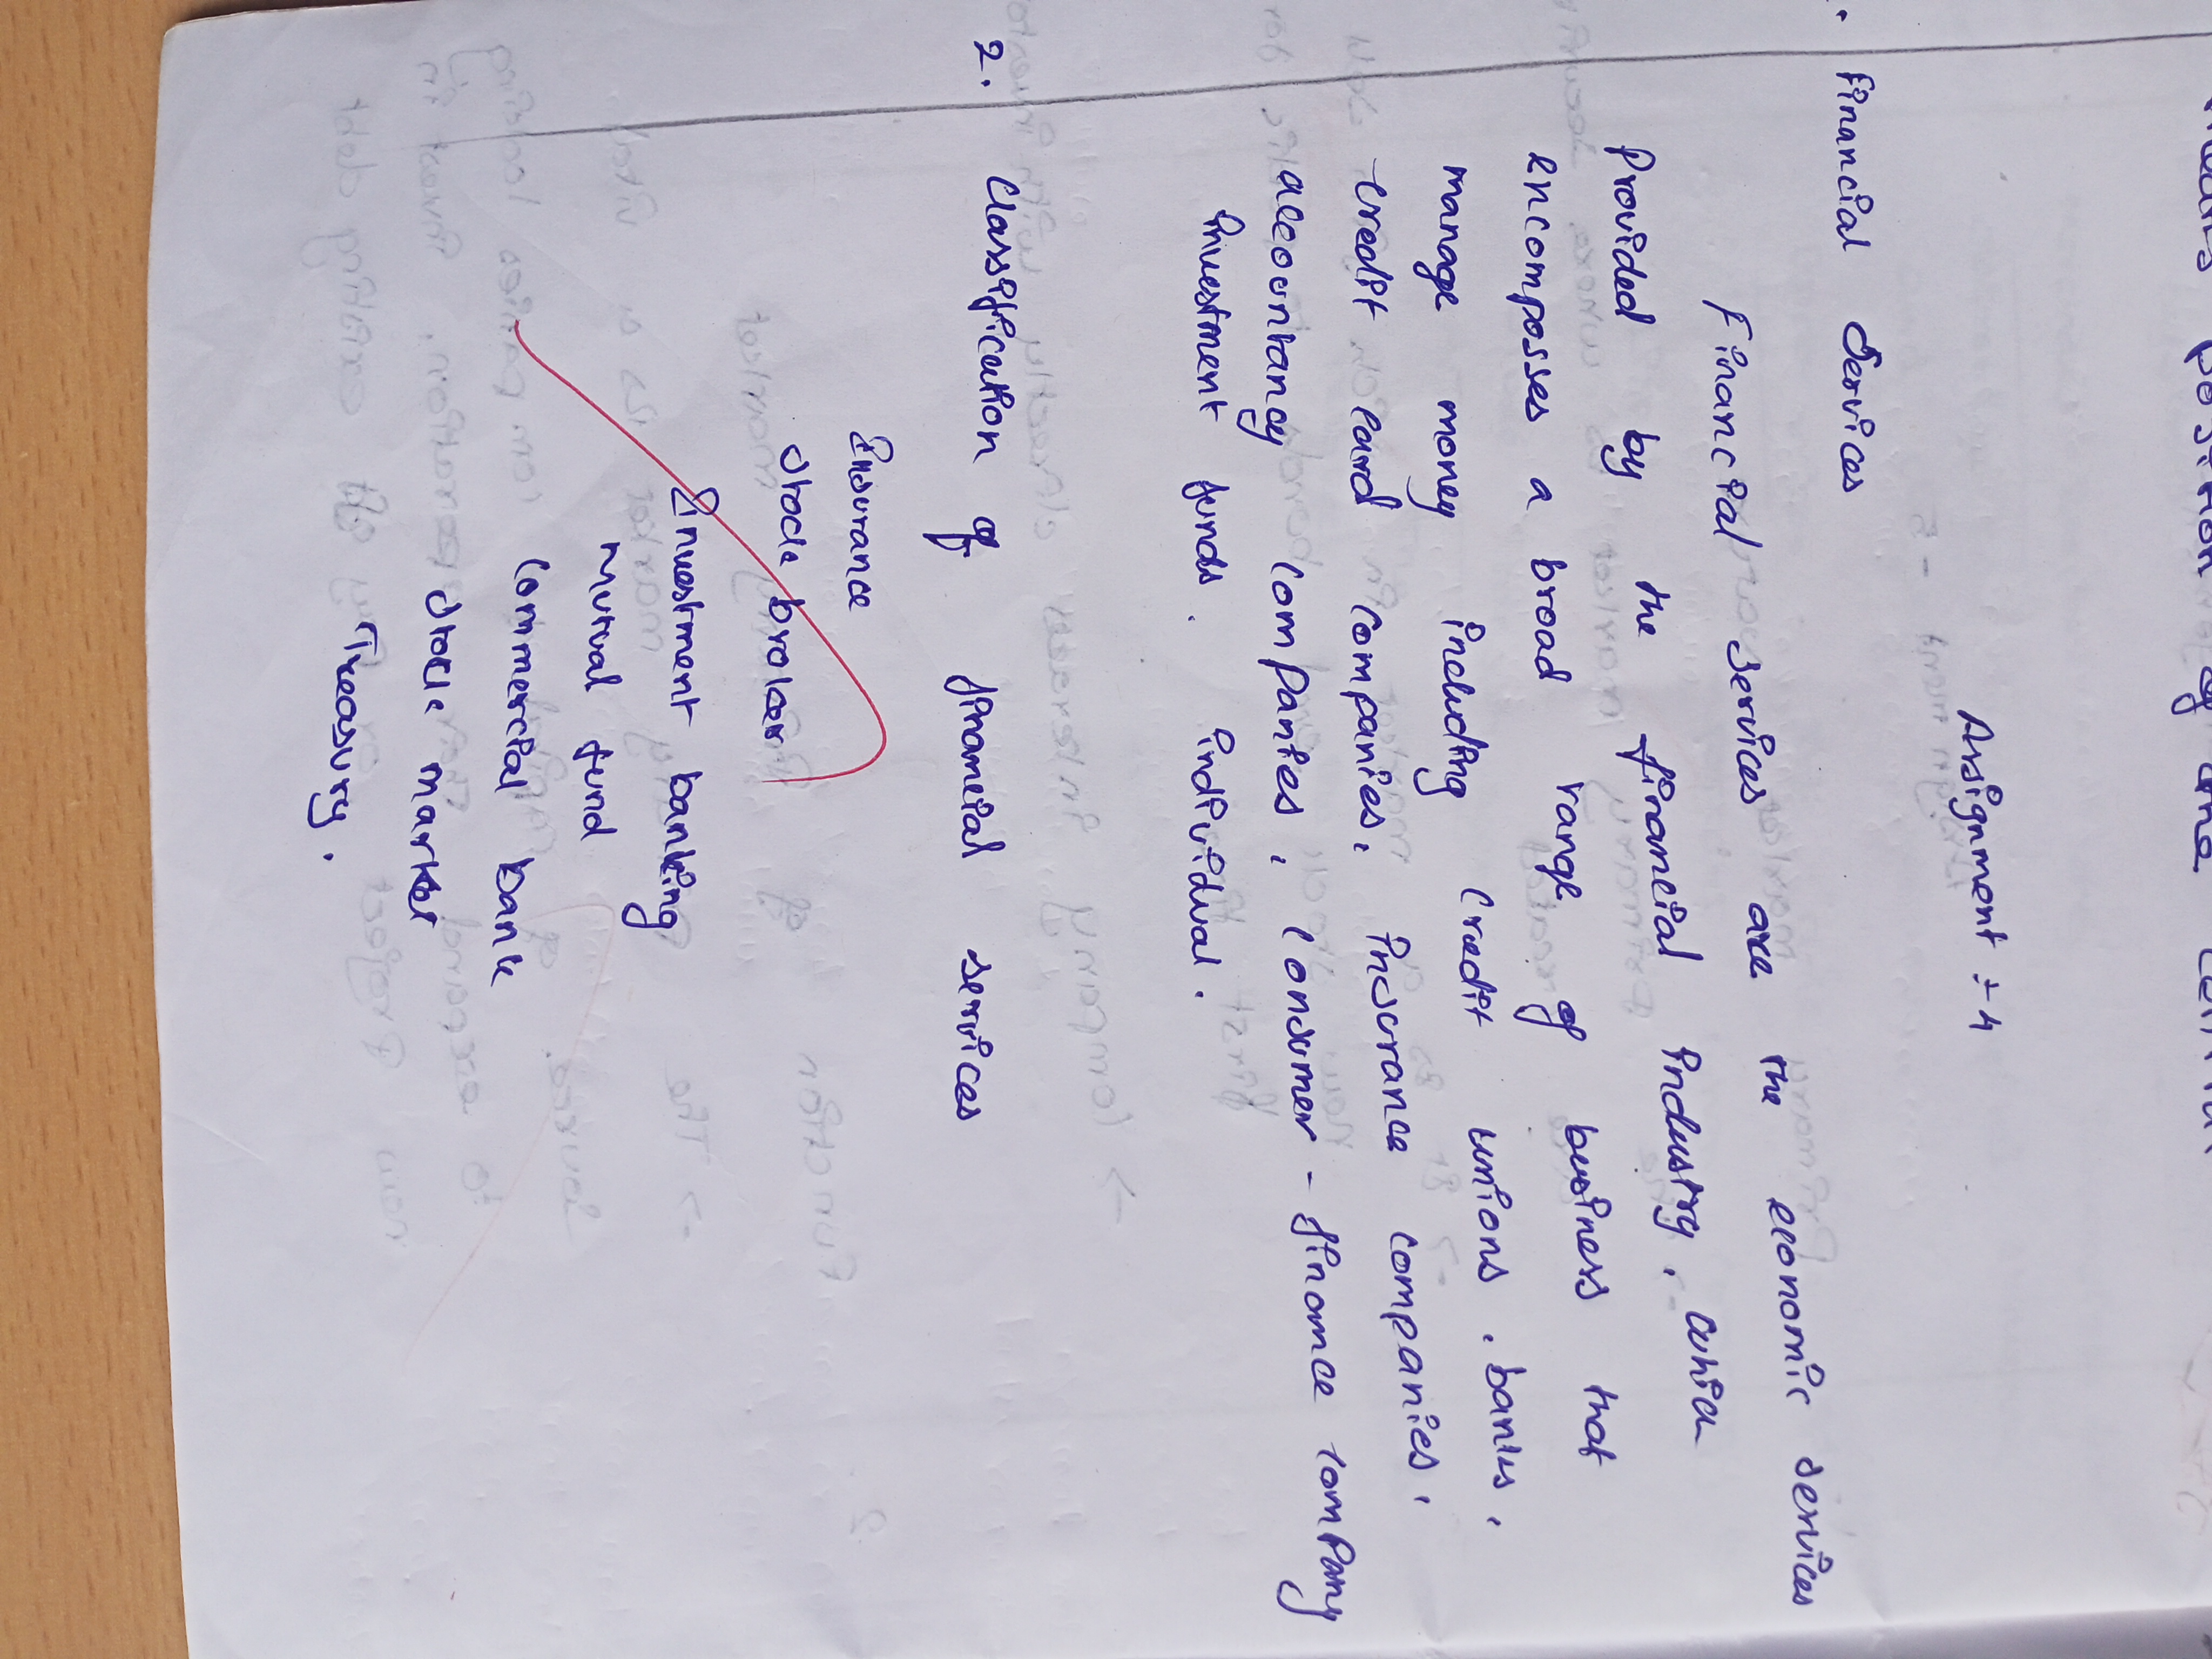 means position of the
Assignment :- 4
Financial Services
Financial services are the economic services
Provided by the financial industry, which
encomposses a broad range of business that
manage money including credit unions, banks,
credit card companies, insurance companies,
accountancy companies, consumer - finance company
investment funds. individual.
2. Classification of financial services
Insurance
Stock broker
Investment banking
Mutual fund
Commercial bank
Stock market
Treasury.